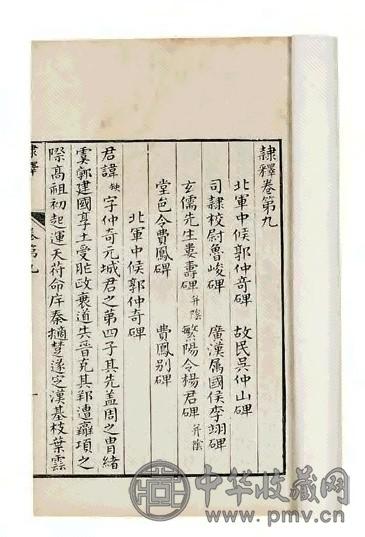 隸釋卷第九
北軍中候郭仲奇碑 故民吳仲山碑
司隸校尉魯峻碑 廣漢属國侯李翊碑
玄儒先生婁壽碑 并陰 繁陽令楊君碑 并陰
堂邑令費鳳碑 費鳳別碑
北軍中候郭仲奇碑
君諱 缺 字仲奇元城君之第四子其先蓋周之胄緒
虞郭建國享土受胙政衰道失晋充其鄈遭離項之
際髙祖初起運天符命序秦擿楚遂定漢基枝葉雲
隸釋
卷第九
中华收藏网
www.pmv.cn